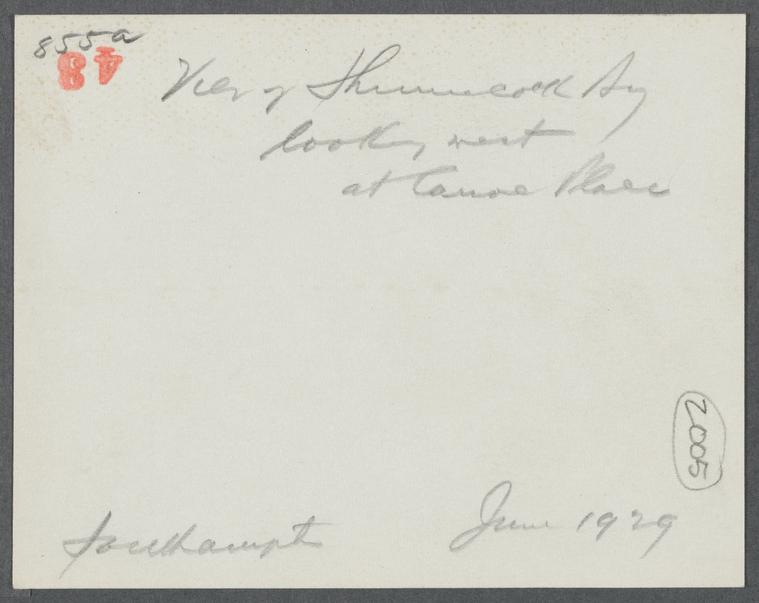 855a
48
View of Shinnecock Bay
looking west
at Canoe Place
2005
Southampton
June 1929